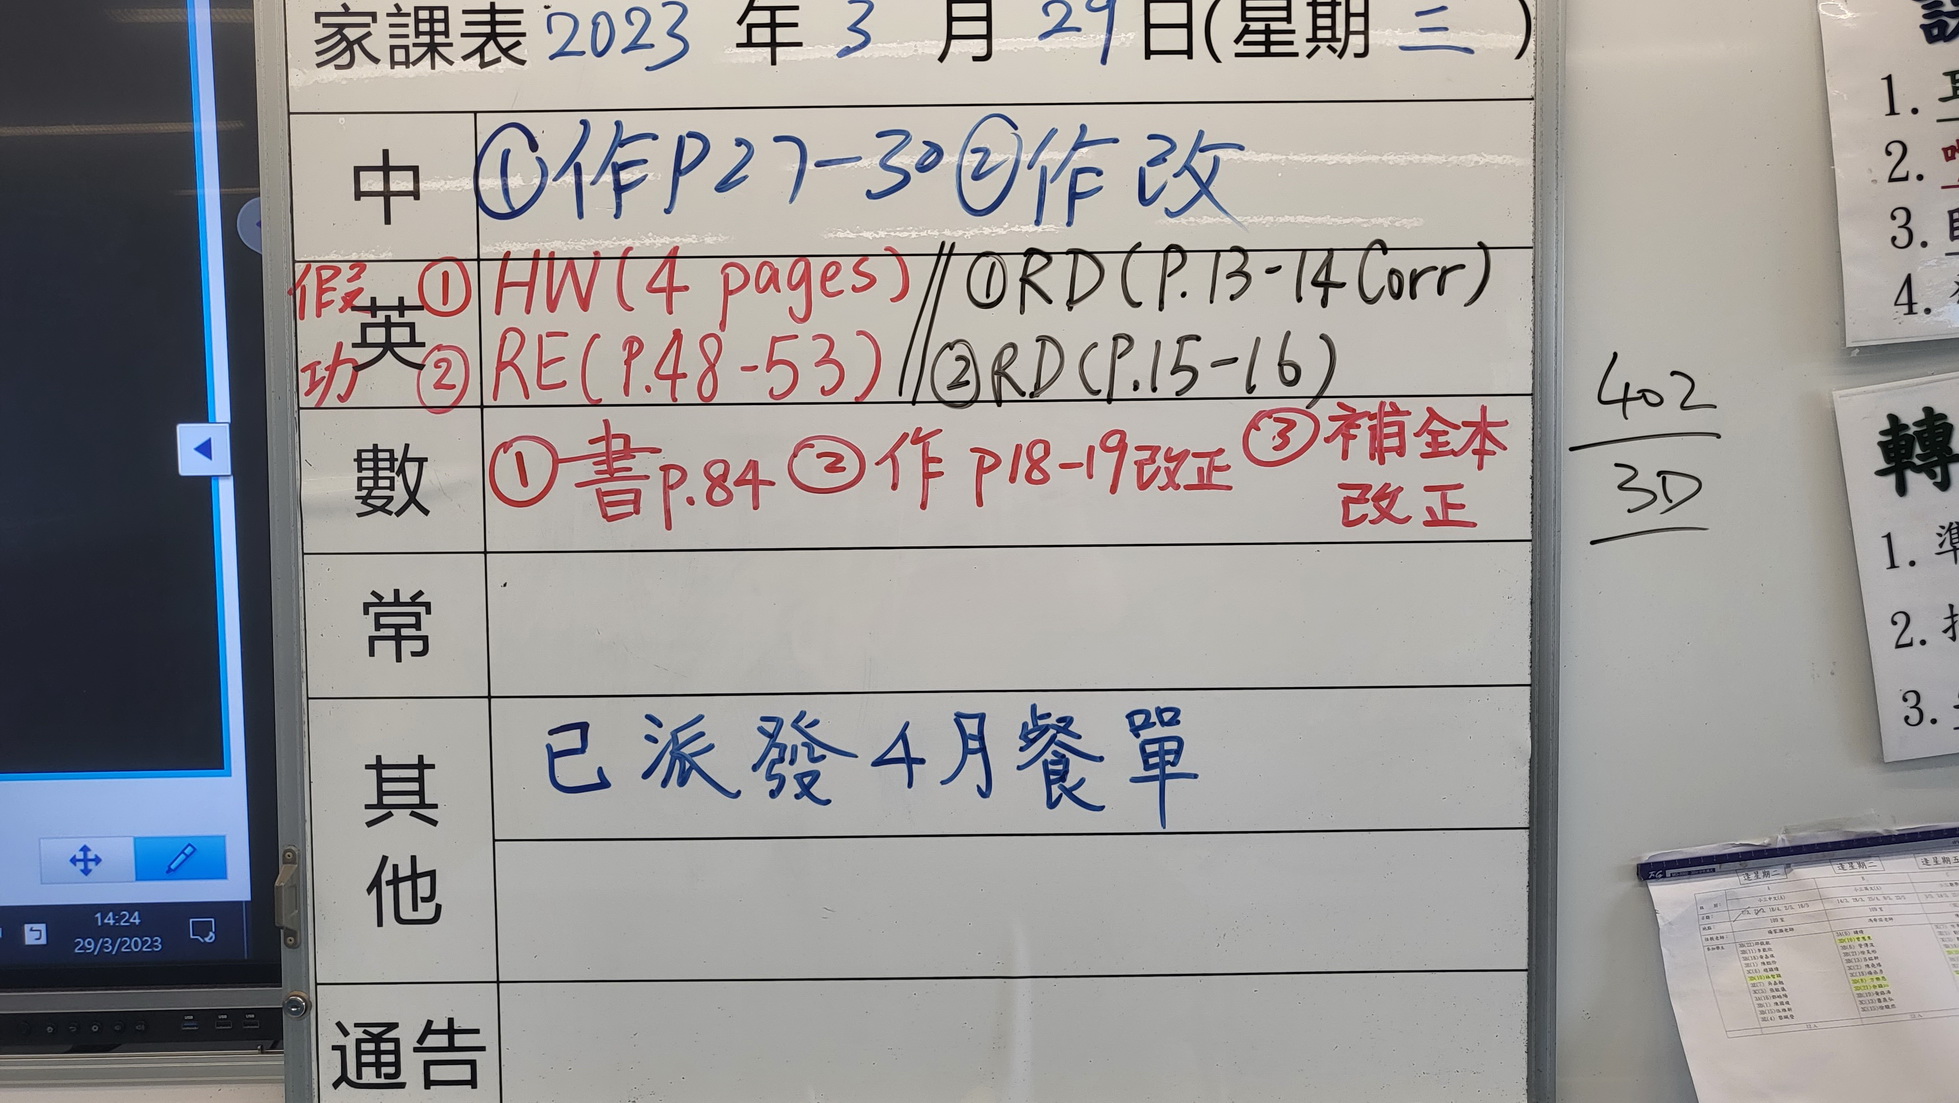 家課表 2023 年 3 月 29 日(星期 三 )
中 ①作P27-30 ②作改
英
假功 ① HW(4 pages) // ①RD(P.13-14 Corr)
② RE(P.48-53) // ②RD(P.15-16)
數 ①書p.84 ②作 p18-19改正 ③補全本
改正
常
其他 已派發4月餐單
通告
402
3D
1.
2.
3.
4.
轉
1. 準
2.
3.
14:24
29/3/2023
逢星期二
逢星期二
逢星期五